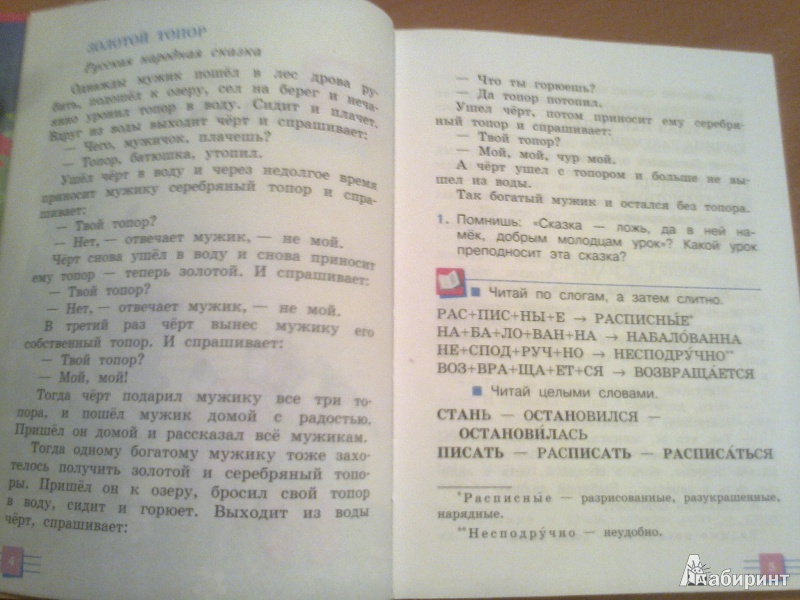 ЗОЛОТОЙ ТОПОР
Русская народная сказка
Однажды мужик пошёл в лес дрова ру-
бить, подошёл к озеру, сел на берег и неча-
янно уронил топор в воду. Сидит и плачет.
Вдруг из воды выходит чёрт и спрашивает:
— Чего, мужичок, плачешь?
— Топор, батюшка, утопил.
Ушёл чёрт в воду и через недолгое время
приносит мужику серебряный топор и спра-
шивает:
— Твой топор?
— Нет, — отвечает мужик, — не мой.
Чёрт снова ушёл в воду и снова приносит
ему топор — теперь золотой. И спрашивает:
— Твой топор?
— Нет, — отвечает мужик, — не мой.
В третий раз чёрт вынес мужику его
собственный топор. И спрашивает:
— Твой топор?
— Мой, мой!
Тогда чёрт подарил мужику все три то-
пора, и пошёл мужик домой с радостью.
Пришёл он домой и рассказал всё мужикам.
Тогда одному богатому мужику тоже захо-
телось получить золотой и серебряный топо-
ры. Пришёл он к озеру, бросил свой топор
в воду, сидит и горюет. Выходит из воды
чёрт, спрашивает:
4
— Что ты горюешь?
— Да топор потопил.
Ушел чёрт, потом приносит ему серебря-
ный топор и спрашивает:
— Твой топор?
— Мой, мой, чур мой.
А чёрт ушел с топором и больше не вы-
шел из воды.
Так богатый мужик и остался без топора.
1. Помнишь: «Сказка — ложь, да в ней на-
мёк, добрым молодцам урок»? Какой урок
преподносит эта сказка?
Читай по слогам, а затем слитно.
РАС+ПИС+НЫ+Е → РАСПИСНЫ́Е*
НА+БА+ЛО+ВАН+НА → НАБАЛО́ВАННА
НЕ+СПОД+РУЧ+НО → НЕСПОДРУ́ЧНО**
ВОЗ+ВРА+ЩА+ЕТ+СЯ → ВОЗВРАЩА́ЕТСЯ
Читай целыми словами.
СТАНЬ — ОСТАНОВИЛСЯ —
ОСТАНОВИ́ЛАСЬ
ПИСАТЬ — РАСПИСАТЬ — РАСПИСА́ТЬСЯ
*Расписны́е — разрисованные, разукрашенные,
нарядные.
**Несподру́чно — неудобно.
5
Лабиринт